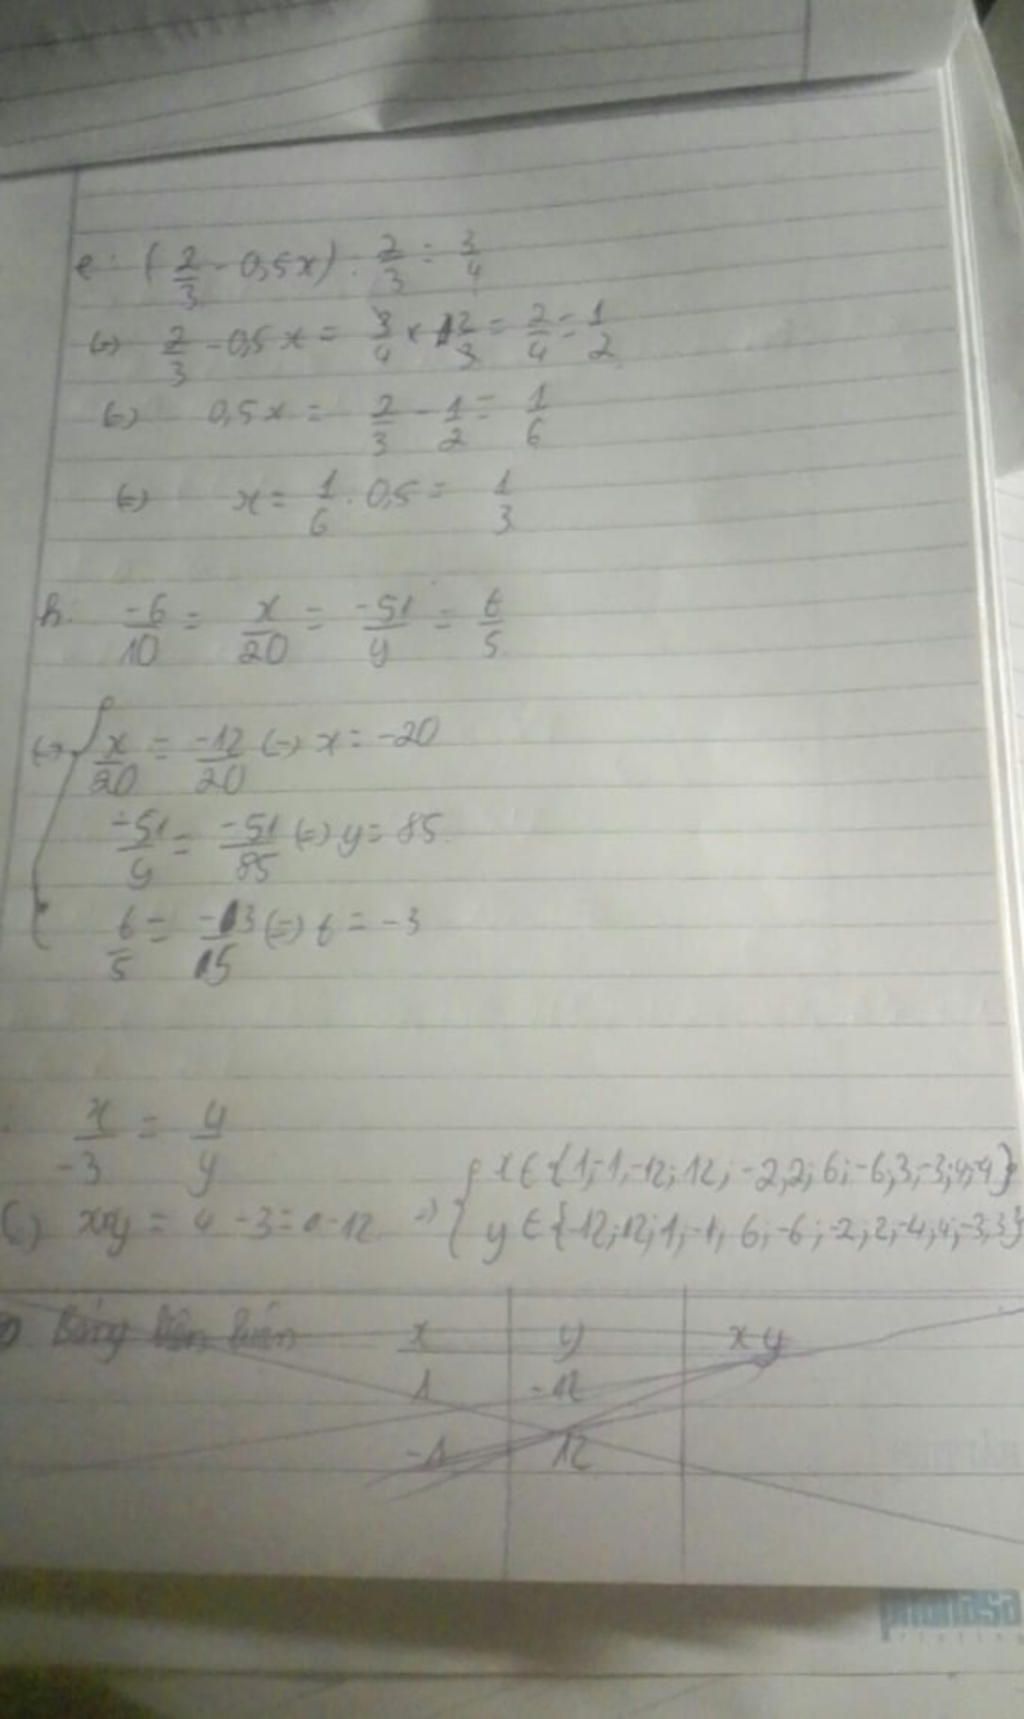 e: (2/3 - 0,5x) : 2/3 = 3/4
(=) 2/3 - 0,5x = 3/4 × 2/3 = 2/4 = 1/2
(=) 0,5x = 2/3 - 1/2 = 1/6
(=) x = 1/6 : 0,5 = 1/3
h: -6/10 = x/20 = -51/y = t/5
(=) { x/20 = -12/20 (=) x = -20
-51/y = -51/85 (=) y = 85
t/5 = -3/5 (=) t = -3
x/-3 = 4/y
(=) xy = 4 · -3 = -12 => { x ∈ {1;-1;-12;12;-2;2;6;-6;3;-3;4;-4}
y ∈ {-12;12;1;-1;6;-6;-2;2;-4;4;-3;3}
Bảng x y xy
1 -12
-1 12